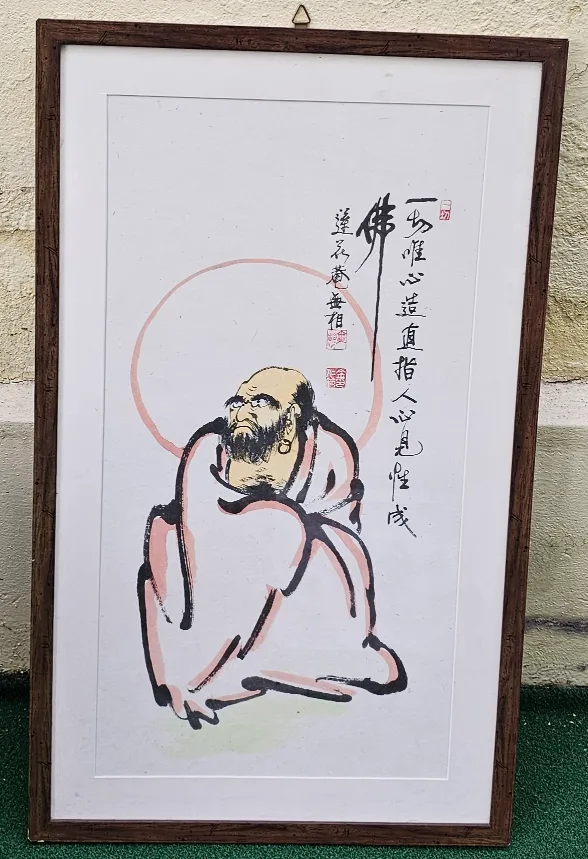 一切唯心造直指人心見性成
佛
蓮花菴無相